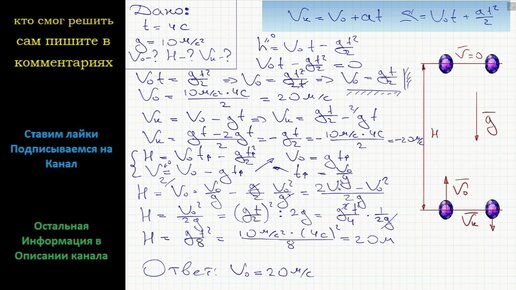 кто смог решить
сам пишите в
комментариях
Ставим лайки
Подписываемся на
Канал
Остальная
Информация в
Описании канала
Дано:
t = 4с
g = 10 м/с²
V₀-? H-? Vк-?
Vк = V₀ + at    S = V₀t + at²/2
h⁼⁰ = V₀t - gt²/2
V₀t - gt²/2 = 0
V₀t = gt²/2 => V₀ = gt²/2t => V₀ = gt/2
V₀ = 10м/с²·4с/2 = 20м/с
Vк = V₀ - gt => Vк = gt/2 - gt
Vк = gt-2gt/2 = -gt/2 = -10м/с²·4с/2 = -20м/с
H = V₀t↑ - gt↑²/2    V₀ = gt↑
V⁼⁰ = V₀ - gt↑    t↑ = V₀/g
H = V₀·V₀/g - g/2·V₀²/g² = 2V₀²-V₀²/2g
H = V₀²/2g = (gt/2)² : 2g = g²t²/4 · 1/2g
H = gt²/8 = 10м/с²·(4с)²/8 = 20м
Ответ: V₀ = 20м/с
V=0
g
H
V₀
Vк